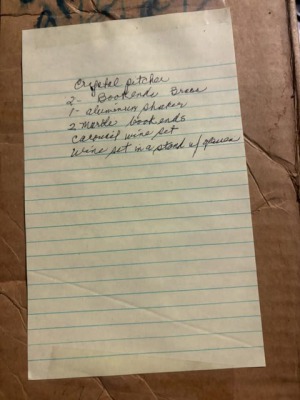 Crystal pitcher
2 - Bookends Brass
1 - aluminum shaker
2 marble bookends
carousil wine set
wine set in a stand w/